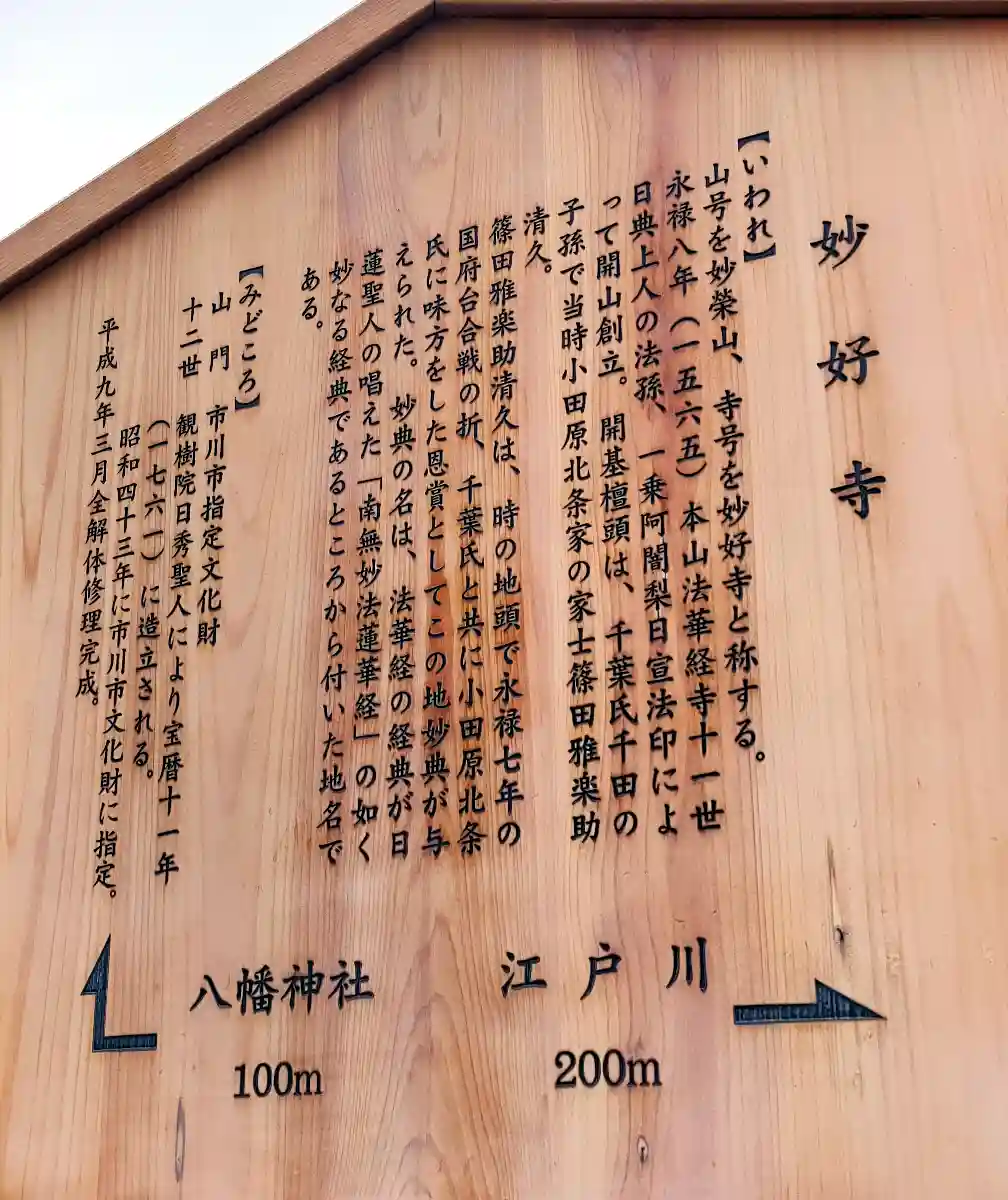 妙好寺
【いわれ】
山号を妙榮山、寺号を妙好寺と称する。
永禄八年(一五六五)本山法華経寺十一世
日典上人の法孫、一乗阿闍梨日宣法印によ
って開山創立。開基檀頭は、千葉氏千田の
子孫で当時小田原北条家の家士篠田雅楽助
清久。
篠田雅楽助清久は、時の地頭で永禄七年の
国府台合戦の折、千葉氏と共に小田原北条
氏に味方をした恩賞としてこの地妙典が与
えられた。妙典の名は、法華経の経典が日
蓮聖人の唱えた「南無妙法蓮華経」の如く
妙なる経典であるところから付いた地名で
ある。
【みどころ】
山門 市川市指定文化財
十二世 観樹院日秀聖人により宝暦十一年
(一七六一)に造立される。
昭和四十三年に市川市文化財に指定。
平成九年三月全解体修理完成。
八幡神社 江戸川
100m 200m